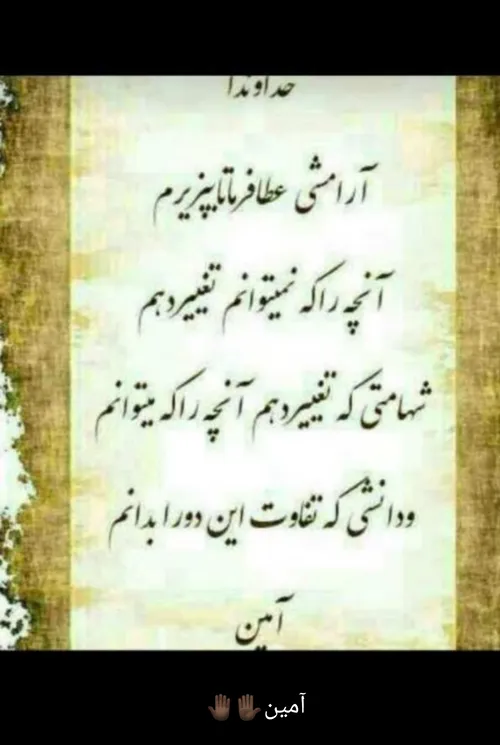 خداوندا
آرامشی عطافرماتابپزیرم
آنچه راکه نمیتوانم تغییردهم
شهامتی که تغییردهم آنچه راکه میتوانم
ودانشی که تفاوت این دورابدانم
آمین
آمین🤚🏿🤚🏿